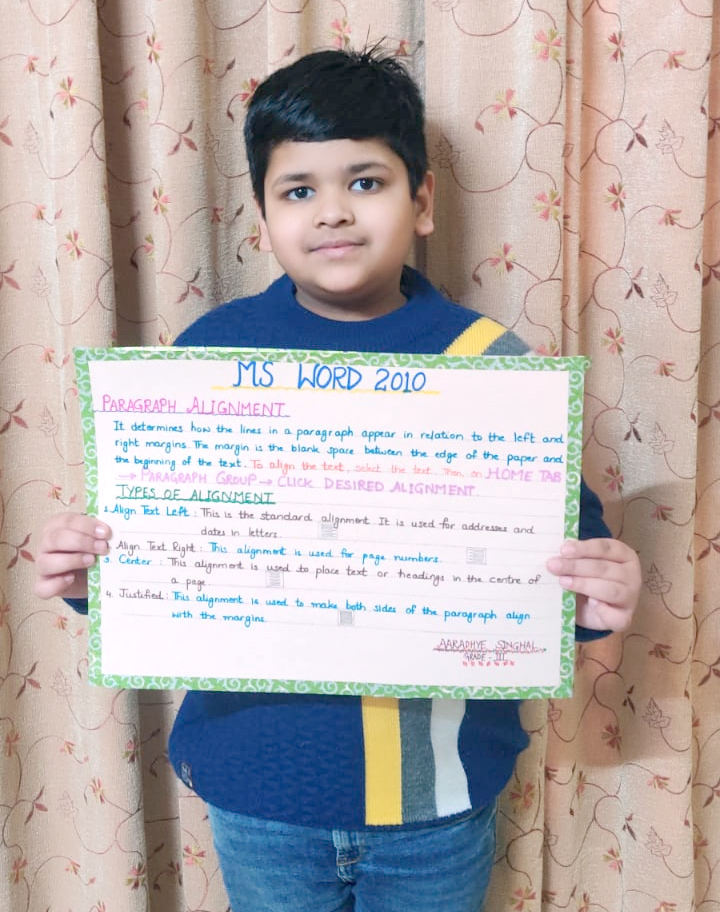 MS WORD 2010
PARAGRAPH ALIGNMENT
It determines how the lines in a paragraph appear in relation to the left and
right margins. The margin is the blank space between the edge of the paper and
the beginning of the text. To align the text, select the text. Then, on HOME TAB
→ PARAGRAPH GROUP → CLICK DESIRED ALIGNMENT.
TYPES OF ALIGNMENT
1. Align Text Left : This is the standard alignment. It is used for addresses and
dates in letters.
Align Text Right : This alignment is used for page numbers.
3. Center : This alignment is used to place text or headings in the centre of
a page
4. Justified : This alignment is used to make both sides of the paragraph align
with the margins.
AARADHYE SINGHAL
GRADE - III